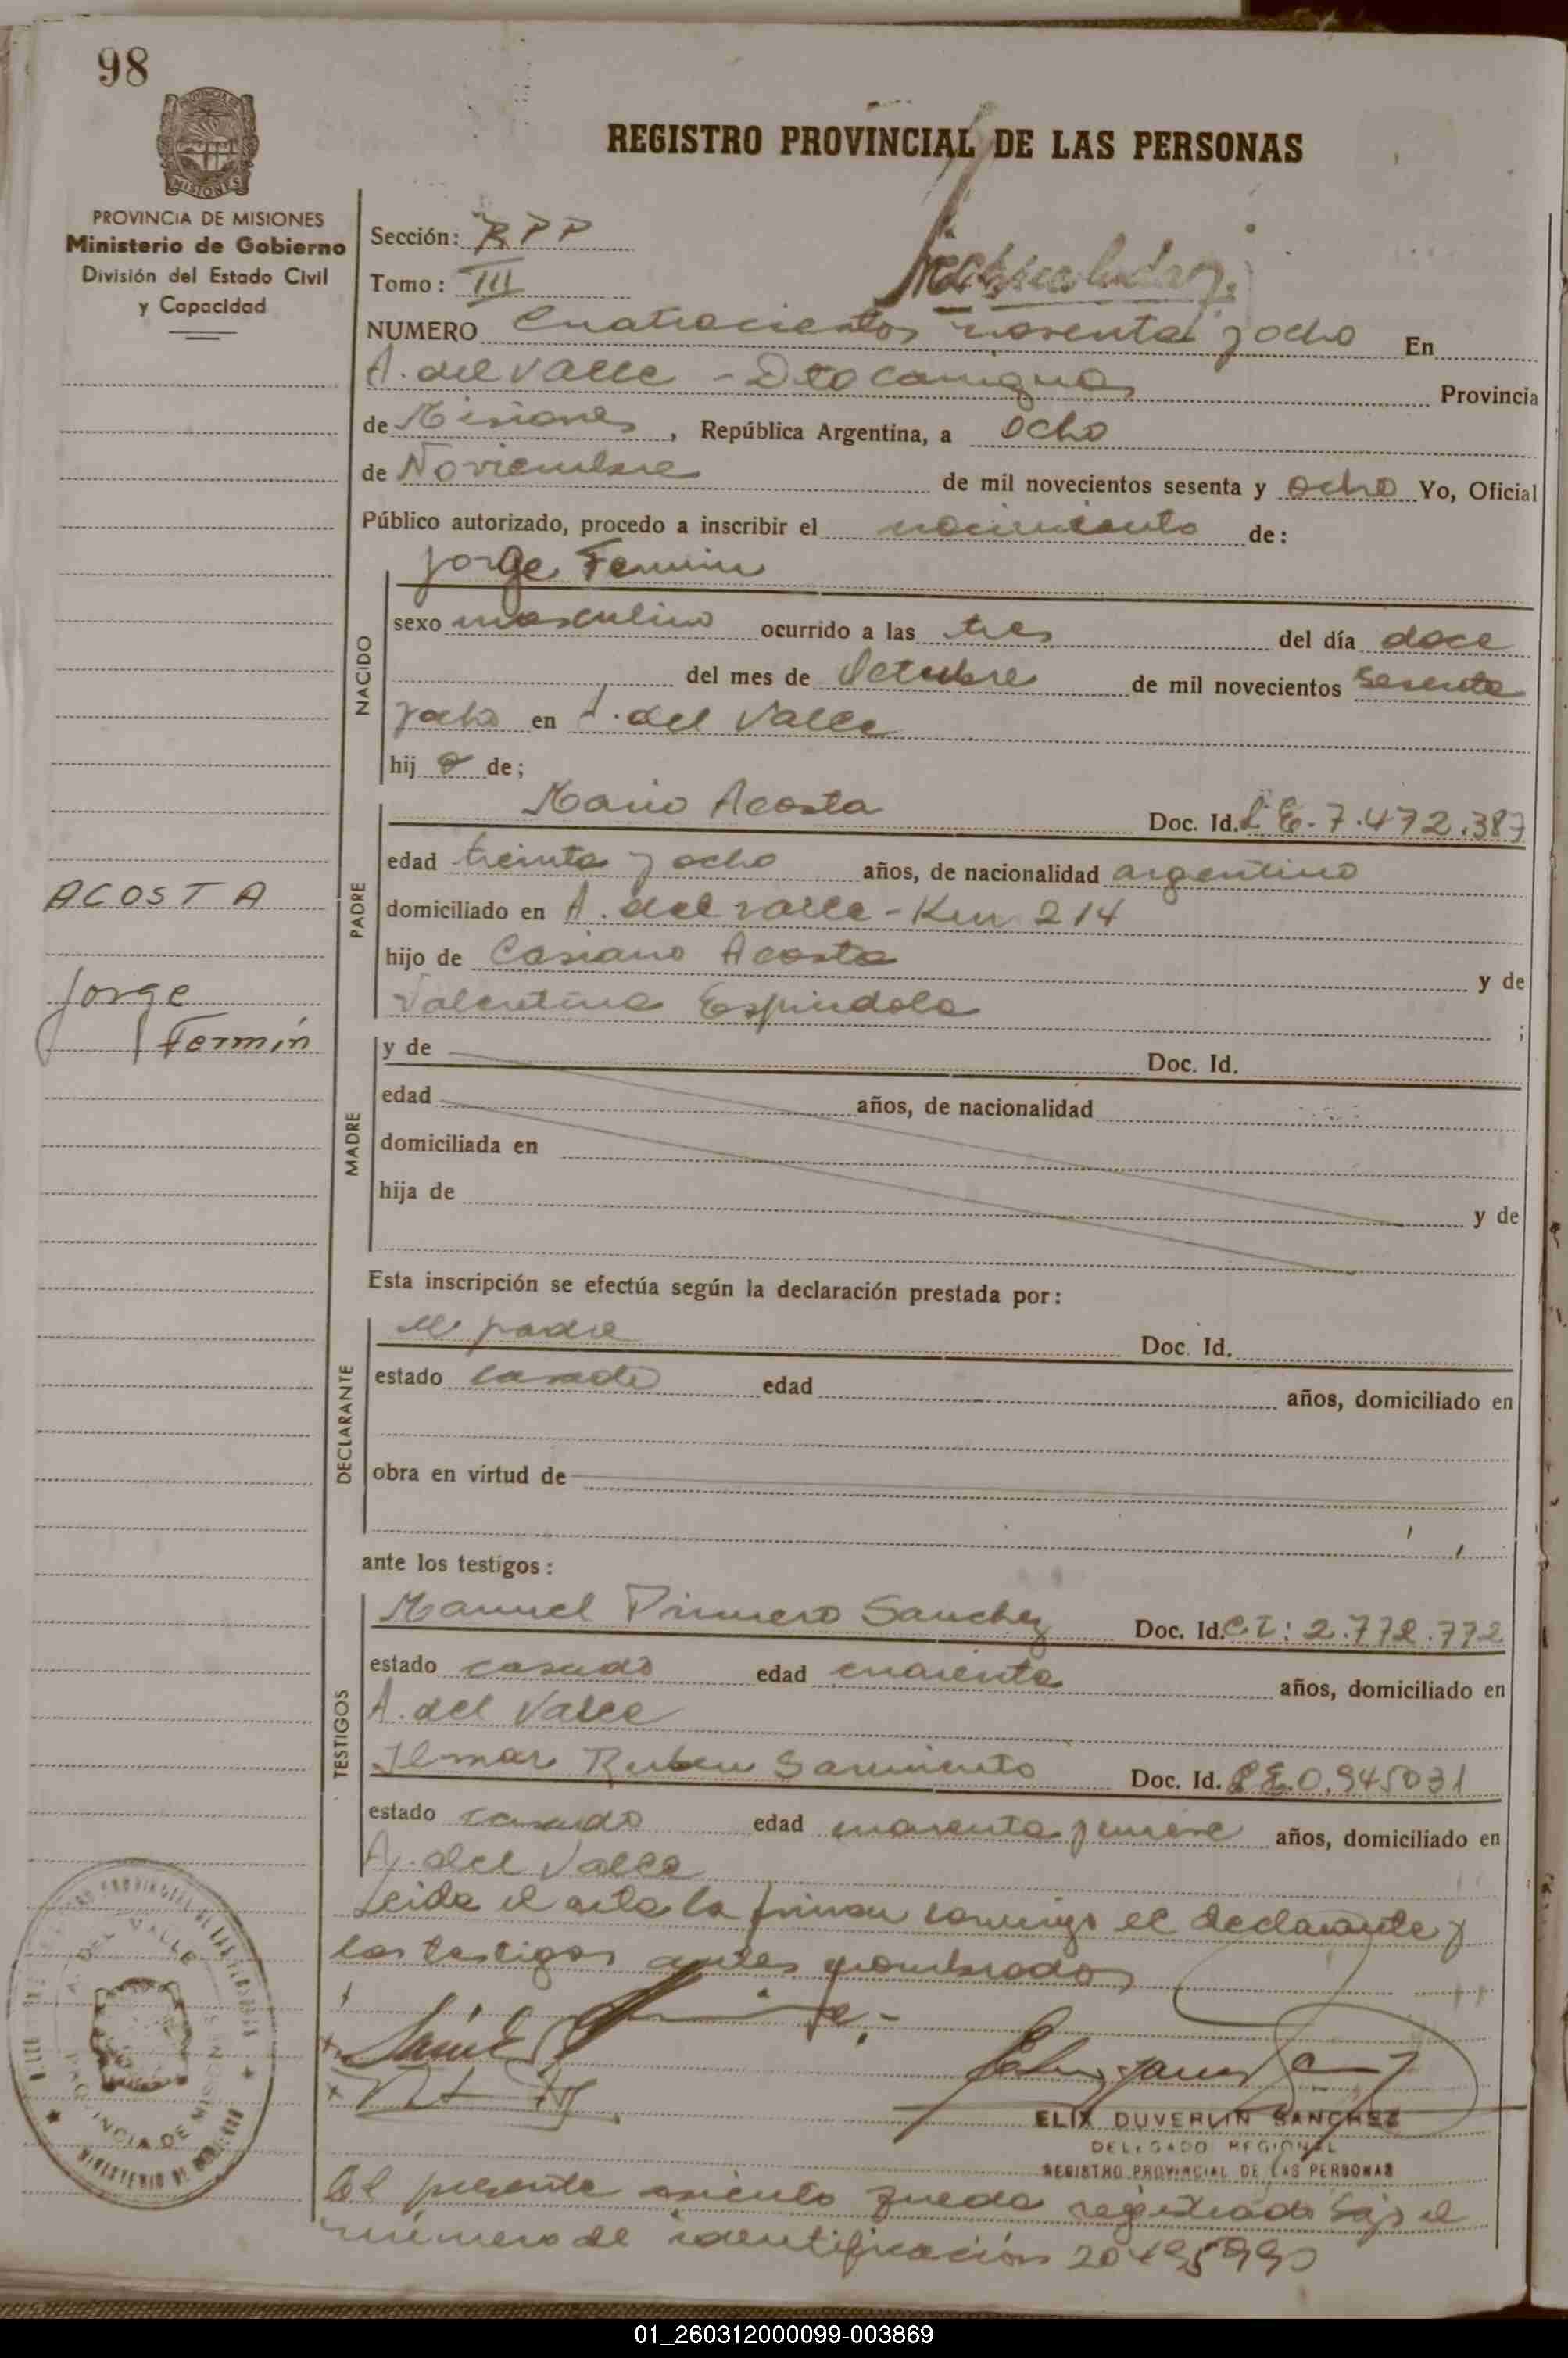 98
REGISTRO PROVINCIAL DE LAS PERSONAS
PROVINCIA DE MISIONES
Ministerio de Gobierno
División del Estado Civil
y Capacidad
Sección: RPP
Tomo: III
NUMERO Cuatrocientos noventa y ocho En
A. del Valle - Dto Cainguas Provincia
de Misiones, República Argentina, a Ocho
de Noviembre de mil novecientos sesenta y ocho Yo, Oficial
Público autorizado, procedo a inscribir el nacimiento de:
Jorge Fermin
NACIDO
sexo masculino ocurrido a las tres del día doce
del mes de Octubre de mil novecientos sesenta
y ocho en A. del Valle
hij o de;
PADRE
Mario Acosta Doc. Id. L E. 7.472.387
edad treinta y ocho años, de nacionalidad argentino
domiciliado en A. del valle - Km 214
hijo de Casiano Acosta y de
Valentina Espindola ;
ACOSTA
Jorge
Fermín
MADRE
y de Doc. Id.
edad años, de nacionalidad
domiciliada en
hija de y de
Esta inscripción se efectúa según la declaración prestada por:
DECLARANTE
el padre Doc. Id.
estado casado edad años, domiciliado en
obra en virtud de
ante los testigos:
TESTIGOS
Manuel Primero Sanchez Doc. Id. C I: 2.772.772
estado casado edad cuarenta años, domiciliado en
A. del Valle
Ilmar Ruben Sarmiento Doc. Id. L E. 0.945031
estado casado edad años, domiciliado en
A. del Valle
Leida el acta la firman conmigo el declarante y
los testigos antes nombrados
ELIX DUVERLIN SANCHEZ
DELEGADO REGIONAL
REGISTRO PROVINCIAL DE LAS PERSONAS
A. DEL VALLE
PROVINCIA DE MISIONES
MINISTERIO DE GOBIERNO
El presente asiento queda registrado bajo el
número de identificación 20495990
01_260312000099-003869